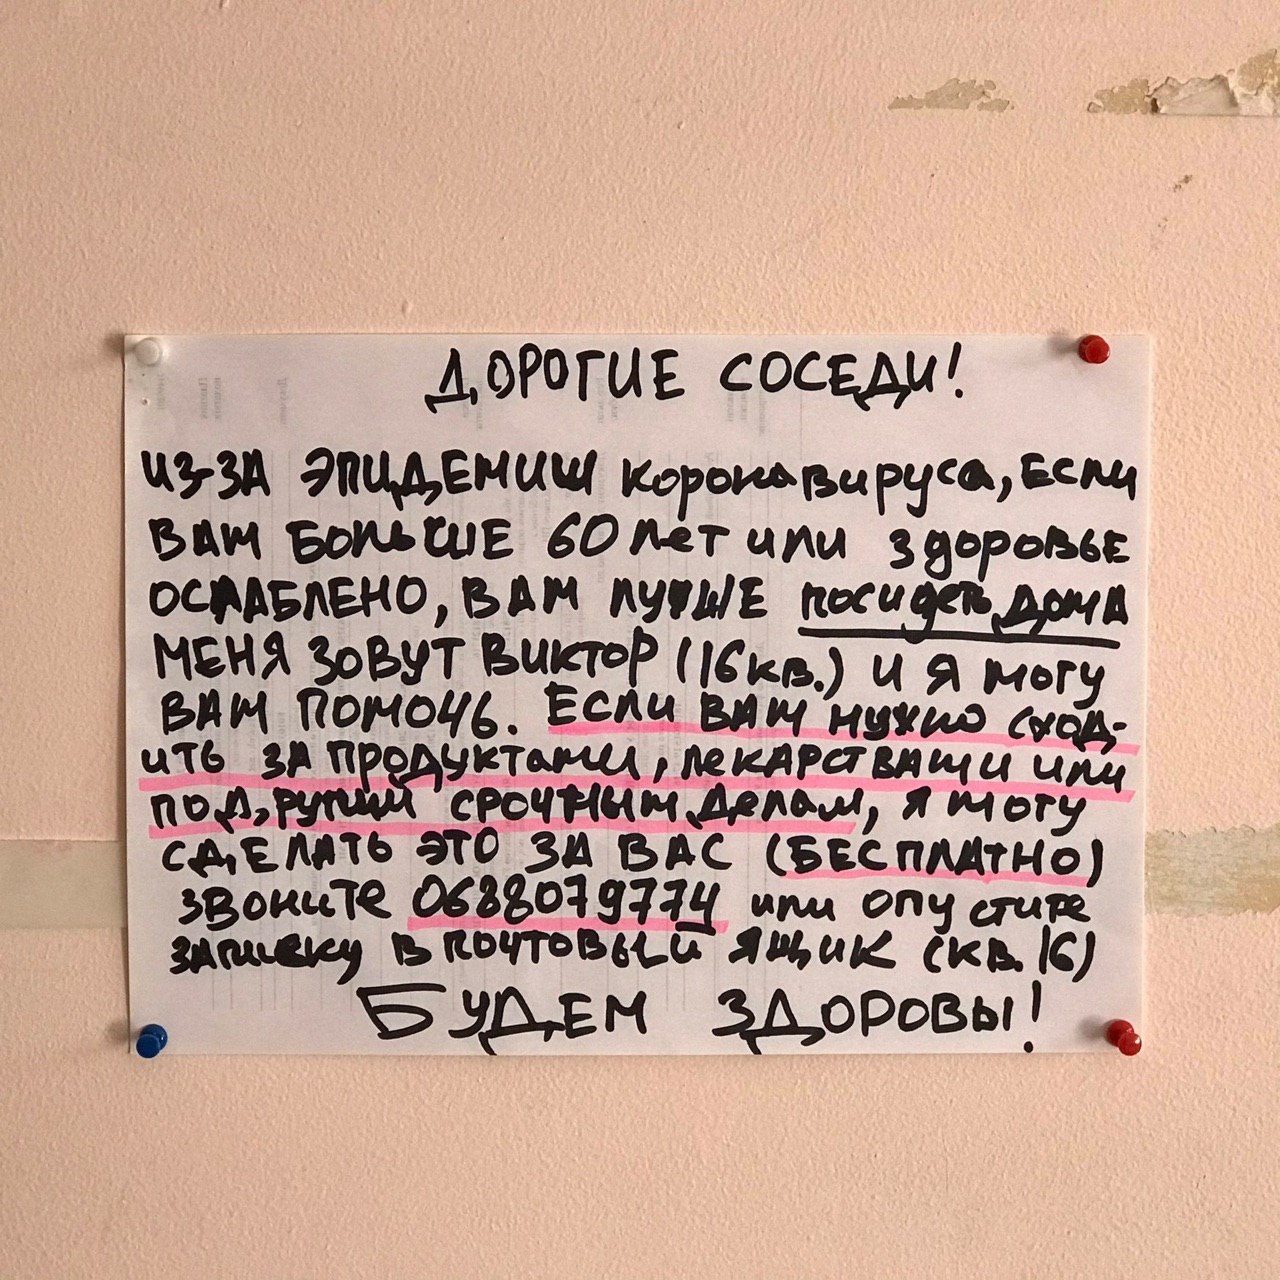 ДОРОГИЕ СОСЕДИ!
ИЗ-ЗА ЭПИДЕМИИ коронавируса, если
ВАМ БОЛЬШЕ 60 лет или здоровье
ОСЛАБЛЕНО, ВАМ ЛУЧШЕ посидеть ДОМА
МЕНЯ ЗОВУТ ВИКТОР (16 кв.) И Я могу
ВАМ ПОМОЧЬ. Если ВАМ нужно сход-
ить за продуктами, лекарствами или
по другим срочным делам, я могу
СДЕЛАТЬ ЭТО ЗА ВАС (БЕСПЛАТНО)
Звоните 0688079774 или опустите
записку в почтовый ящик (кв. 16)
БУДЕМ ЗДОРОВЫ!